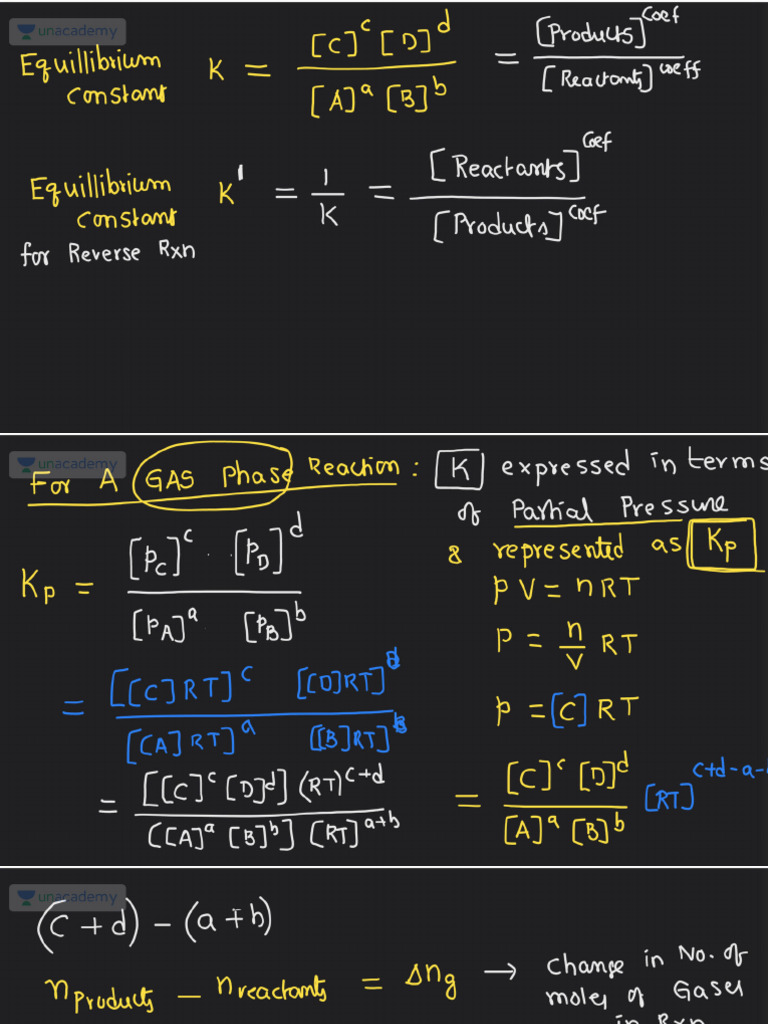 unacademy
Equillibrium constant K = [C]^c [D]^d / [A]^a [B]^b = [Products]^coef / [Reactants]^coeff
Equillibrium constant for Reverse Rxn K' = 1/K = [Reactants]^coef / [Products]^coef
unacademy
For A GAS Phase Reaction : K expressed in terms
of Partial Pressure
& represented as Kp
Kp = [PC]^c . [PD]^d / [PA]^a [PB]^b
PV = nRT
P = n/V RT
= [[C]RT]^c [[D]RT]^d / [[A]RT]^a [[B]RT]^b
P = [C] RT
= [[C]^c [D]^d] (RT)^c+d / ([A]^a [B]^b] [RT]^a+b
= [C]^c [D]^d / [A]^a [B]^b [RT]^c+d-a-
unacademy
(c + d) - (a + b)
nProducts - nreactants = Δng → Change in No. of
moles of Gases
in Rxn